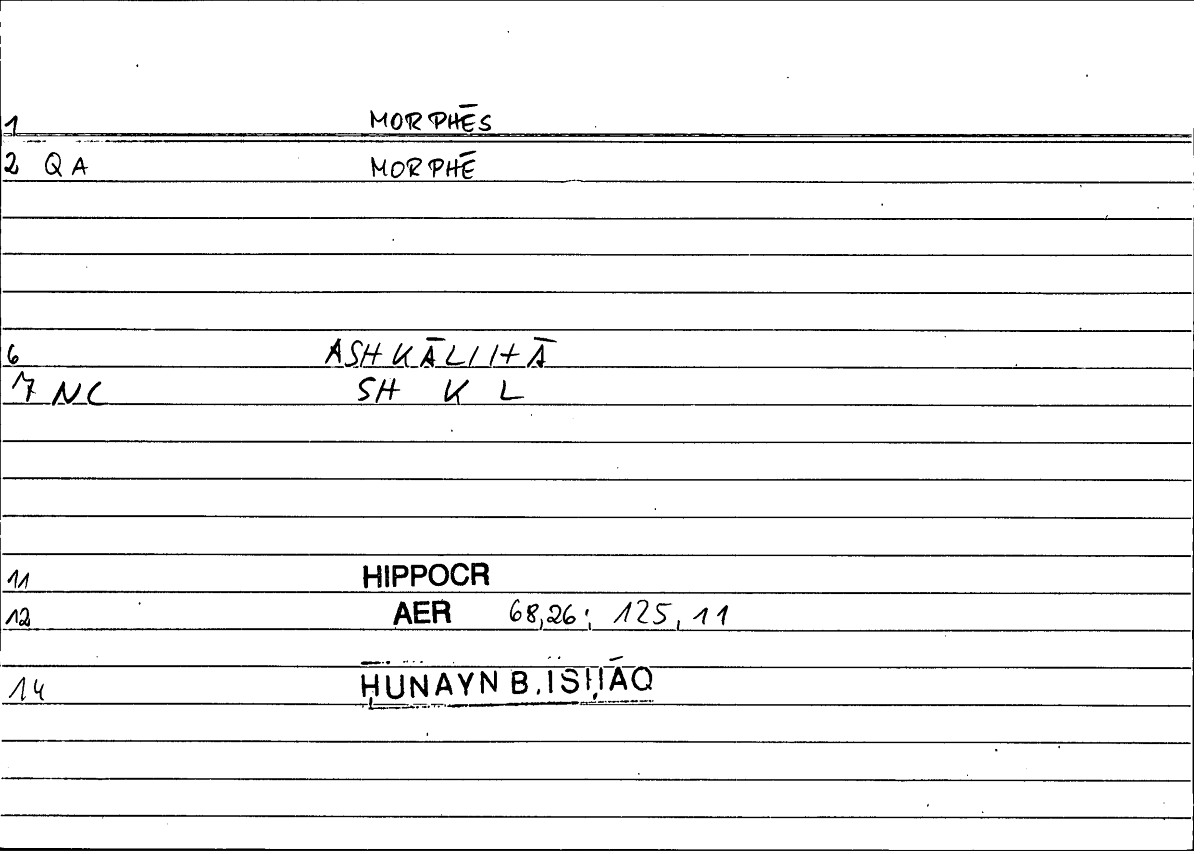 1 MORPHĒS
2 QA MORPHĒ
6 ASHKĀLIHĀ
7 NC SH K L
11 HIPPOCR
12 AER 68,26; 125,11
14 ḤUNAYN B. ISḤĀQ